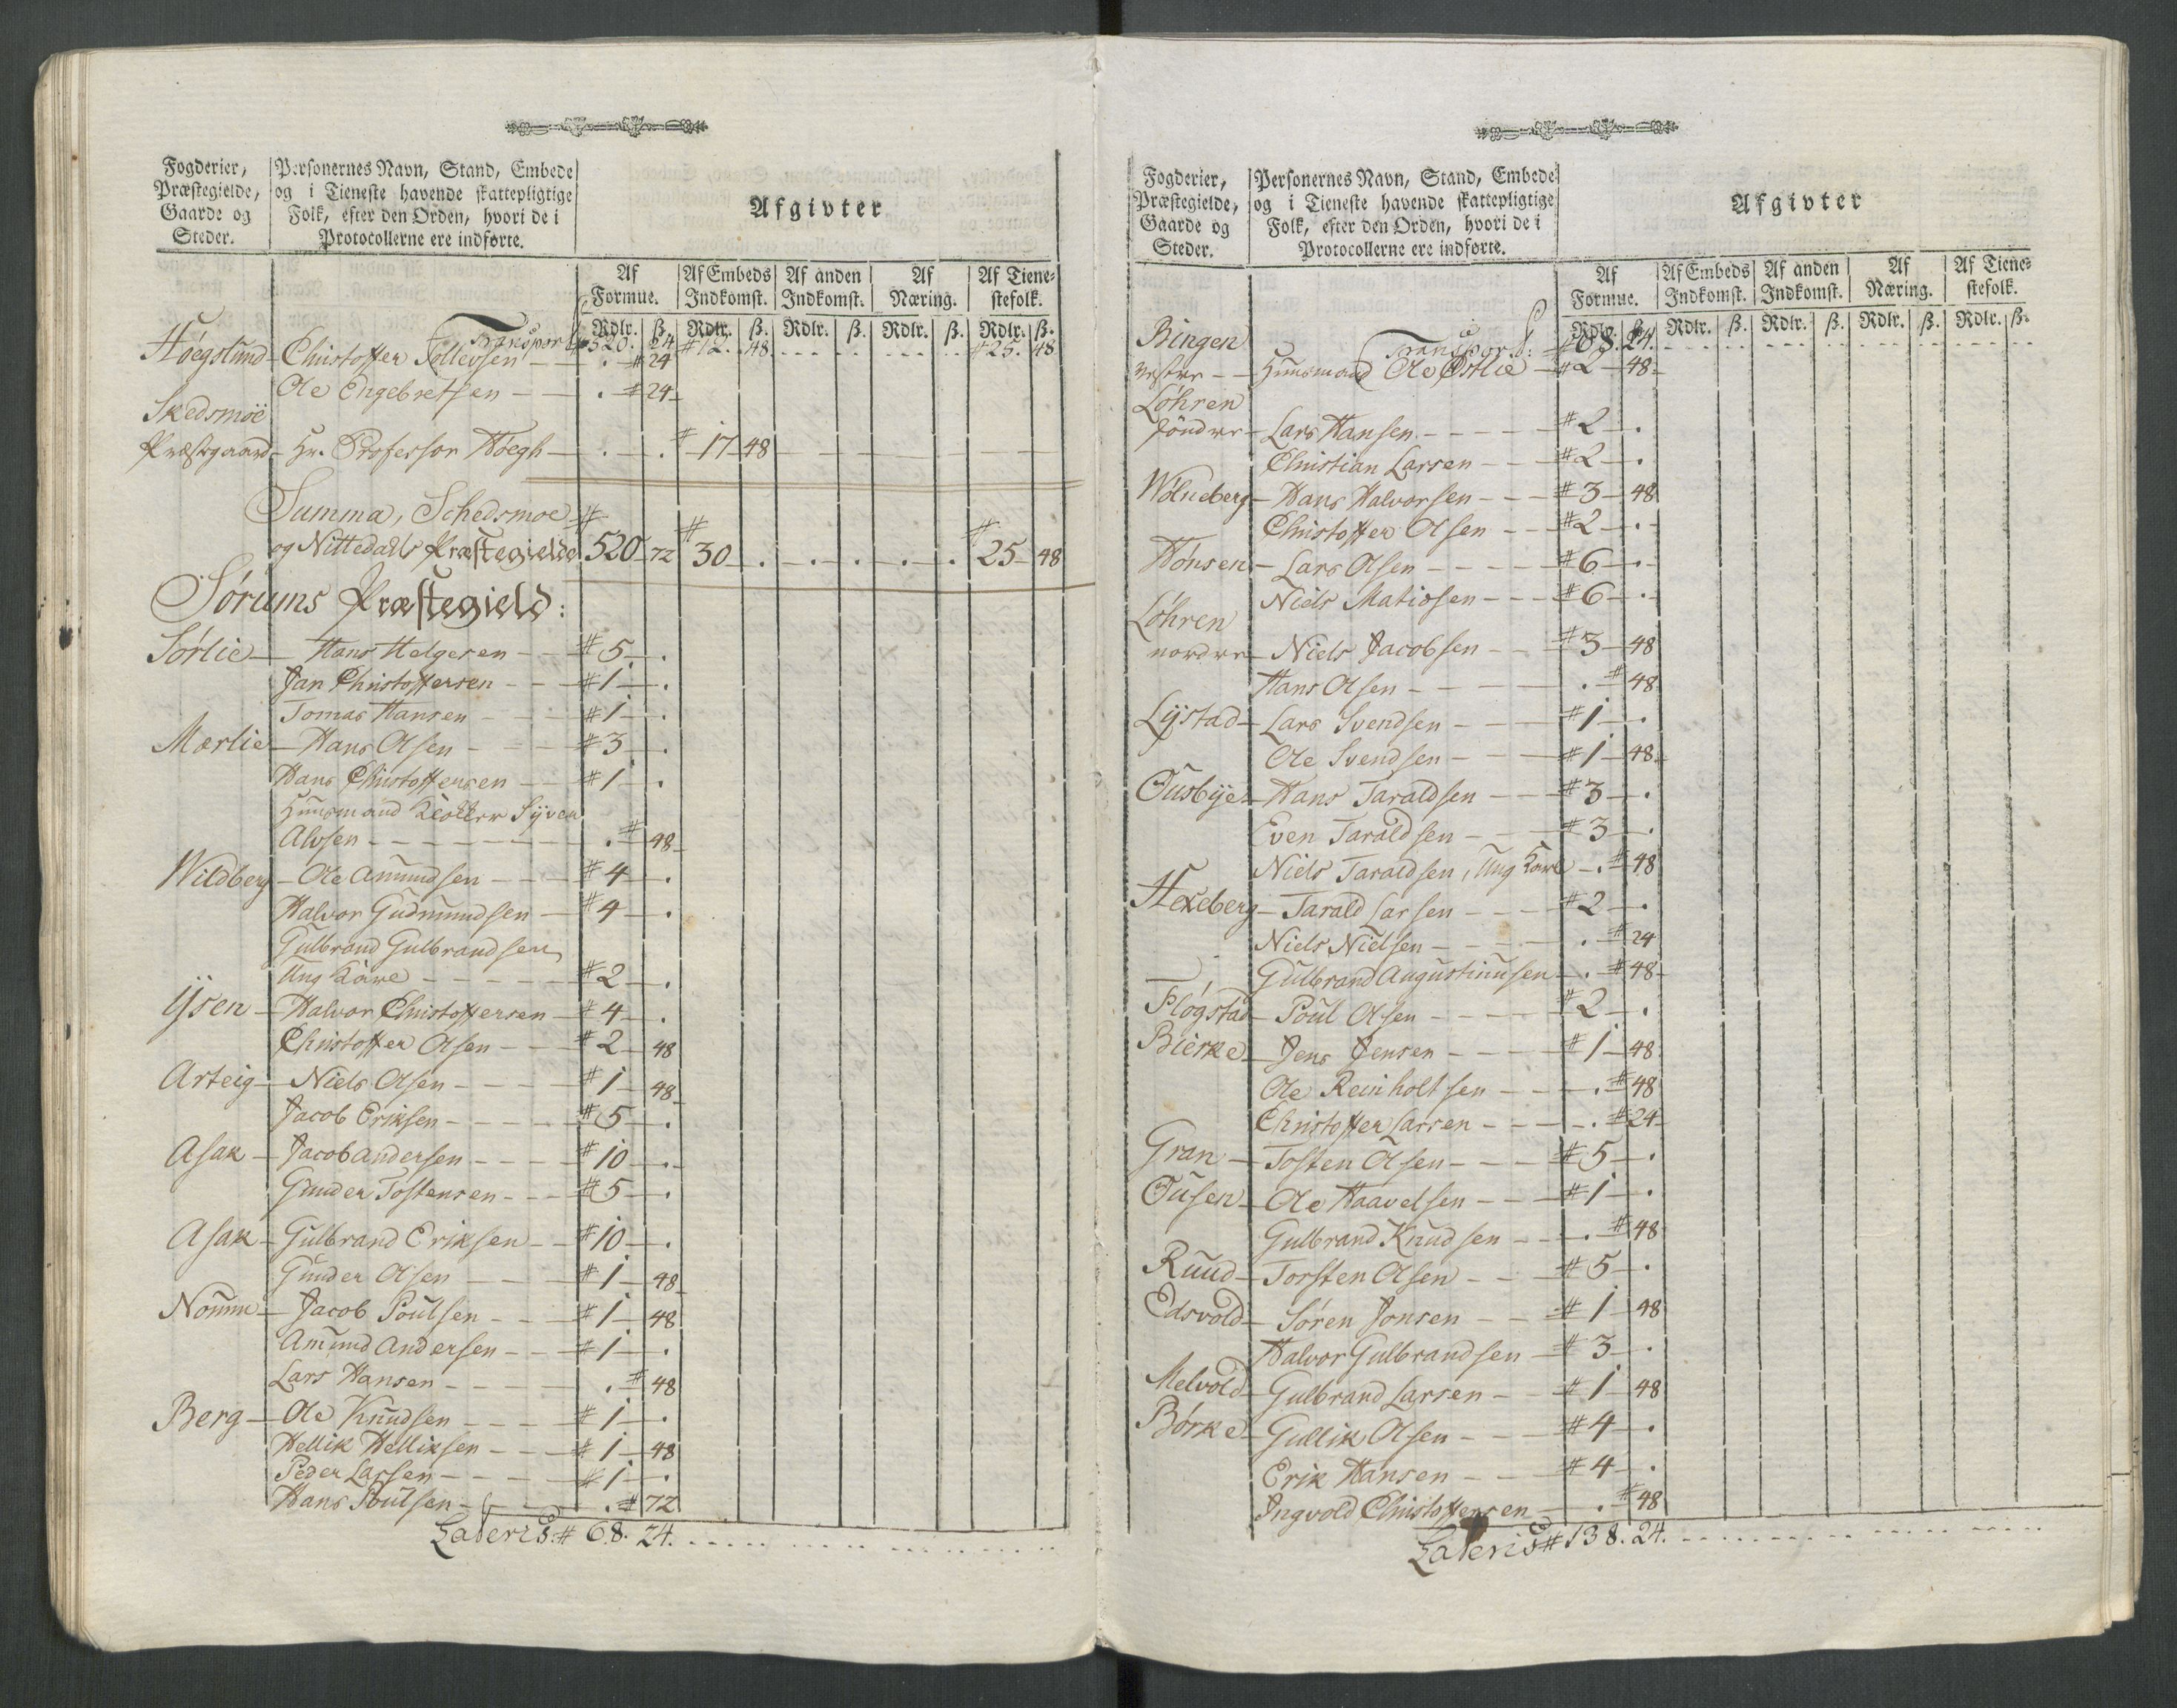 Fogderier, Præstegielde, Gaarde og Steder.
Personernes Navn, Stand, Embede og i Tieneste havende skattepligtige Folk, efter den Orden, hvori de i Protocollerne ere indførte.
Afgivter
Af Formue. Af Embeds Indkomst. Af anden Indkomst. Af Næring. Af Tienestefolk.
Rdlr. ß. Rdlr. ß. Rdlr. ß. Rdlr. ß. Rdlr. ß.
Transport # 520. 24 # 12. 48 # 25. 48
Høegslund Christoffer Tollevsen . # 24
Ole Engebretsen . # 24
Skedsmoe
Præstgaard Hr. Professor Høegh . . # 17 48
Summa, Schedsmoe
og Nittedahls Præstegielde # 520 72 # 30 . . . . . # 25 48
Sørums Præstegield:
Sørlie Hans Helgesen # 5 .
Jan Christoffersen # 1 .
Tomas Hansen # 1 .
Mærlie Hans Olsen # 3 .
Hans Christoffersen # 1 .
Huusmand Syver
Alvsen . # 48
Wildberg Ole Amundsen # 4 .
Halvor Gudmundsen # 4 .
Gulbrand Gulbrandsen
Ung Karl # 2 .
Ÿsen Halvor Christoffersen # 4 .
Christoffer Olsen # 2 48
Arteig Niels Olsen # 1 48
Jacob Eriksen # 5 .
Asak Jacob Andersen # 10 .
Gunder Tostensen # 5 .
Asak Gulbrand Eriksen # 10 .
Gunder Olsen # 1 48
Jacob Poulsen # 1 48
Amund Andersen # 1 .
Lars Hansen . # 48
Berg Ole Knudsen # 1 .
Hellik Helliksen # 1 48
Peder Larsen # 1 .
Hans Poulsen . # 72
Lateris # 68. 24.
Fogderier, Præstegielde, Gaarde og Steder.
Personernes Navn, Stand, Embede og i Tieneste havende skattepligtige Folk, efter den Orden, hvori de i Protocollerne ere indførte.
Afgivter
Af Formue. Af Embeds Indkomst. Af anden Indkomst. Af Næring. Af Tienestefolk.
Rdlr. ß. Rdlr. ß. Rdlr. ß. Rdlr. ß. Rdlr. ß.
Bingen Transport: # 68. 24.
vestre Huusmand Ole Østlie # 2 48
Løhren
søndre Lars Hansen # 2 .
Christian Larsen # 2 .
Wølneberg Hans Halvorsen # 3 48
Christoffer Olsen # 2 .
Hønsen Lars Olsen # 6 .
Niels Matiesen # 6 .
Løhren
nordre Niels Jacobsen # 3 48
Hans Olsen . # 48
Lÿstad Lars Svendsen # 1 .
Ole Svendsen # 1 48
Ousbÿe Hans Taraldsen # 3 .
Even Taraldsen # 3 .
Niels Taraldsen, Ung Karl . # 48
Hexeberg Tarald Larsen # 2 .
Niels Nielsen . # 24
Gulbrand Augustinusen . # 48
Fløgstad Poul Olsen # 2 .
Bierke Jens Jensen # 1 48
Ole Reinholtsen . # 48
Christoffer Larsen . # 24
Gran Tosten Olsen # 5 .
Ousen Ole Haavelsen # 1 .
Gulbrand Knudsen . # 48
Ruud Torsten Olsen # 5 .
Edsvold Søren Jonsen # 1 48
Halvor Gulbrandsen # 3 .
Melvold Gulbrand Larsen # 1 48
Børke Gullik Olsen # 4 .
Erik Hansen # 4 .
Ingvold Christoffersen . # 48
Lateris # 138. 24.